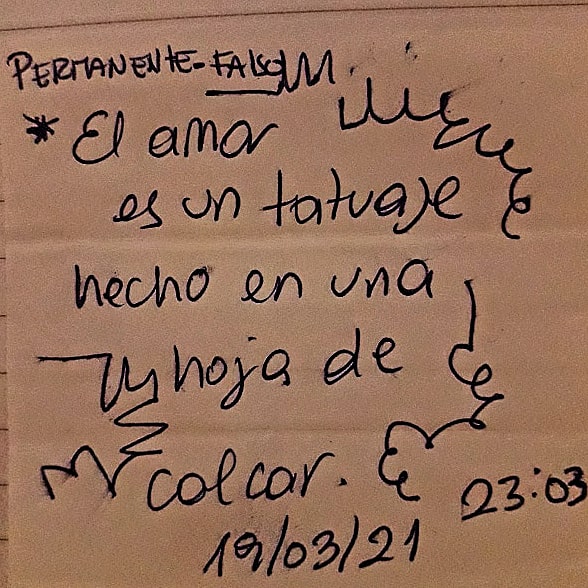 PERMANENTE-FALSO
* El amor
es un tatuaje
hecho en una
hoja de
colcar.
23:03
19/03/21